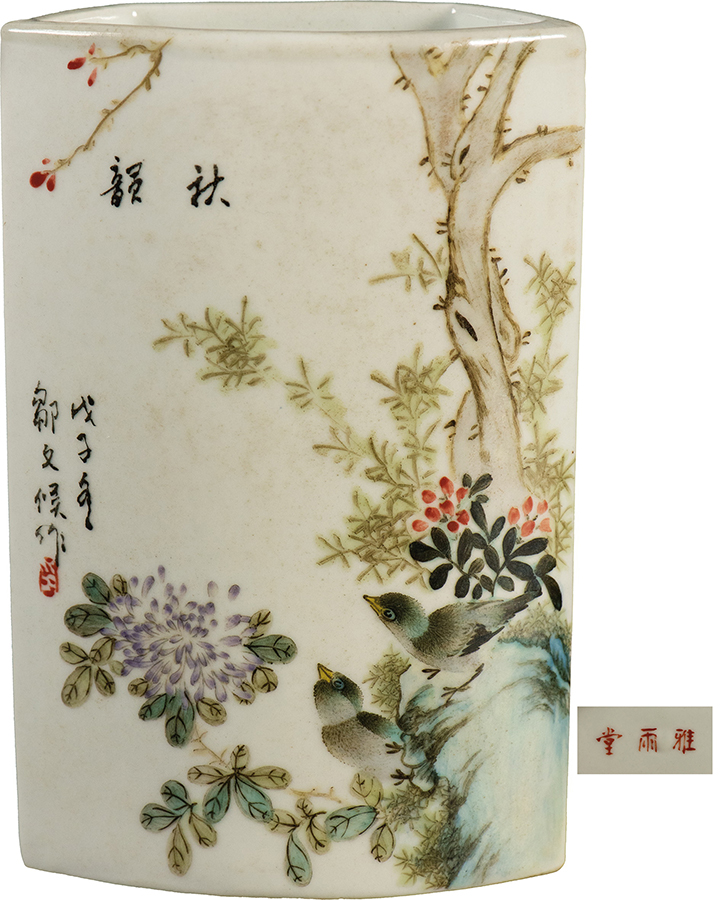 秋韻
戊子冬
鄒文候作
雅雨堂